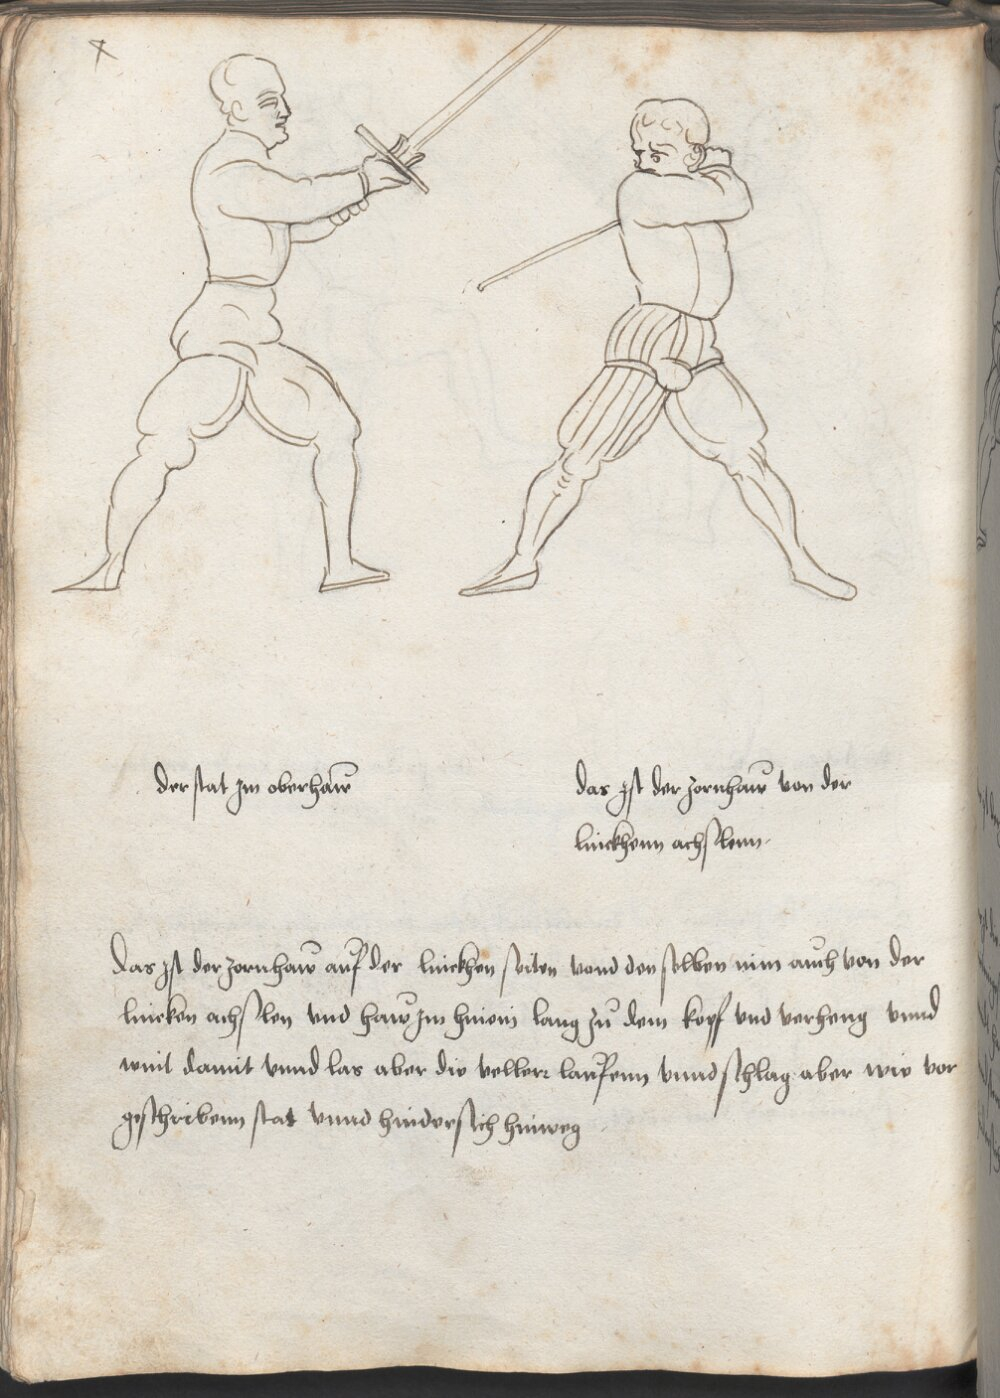 der stat jm oberhaw
das jst der zornhaw von der
linckhenn achslenn
Das jst der zornhaw auf der linckhen seiten vnnd den selben nim auch von der
lincken achslen vnd haw jm hinein lang zu dem kopf vnd verheng vnnd
wint damit vnnd las aber die veller laufenn vnnd schlag aber wie vor
geschribenn stat vnnd hindersich hinweg